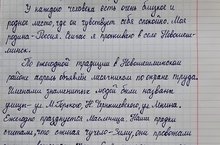 У каждого человека есть очень близкое и
родное место, где он чувствует себя спокойно. Моя
родина - Россия. Сейчас я проживаю в селе Новошеш-
минск.
По ежегодной традиции в Новошешминском
районе апрель объявлен месячником по охране труда.
Именами знаменитых людей были названы
улицы - ул. М. Горького, Н. Чернышевского, ул. Ленина.
Ежегодно празднуется Масленица. Наши предки
считали, что сжигая чучело - Зиму, они провожали